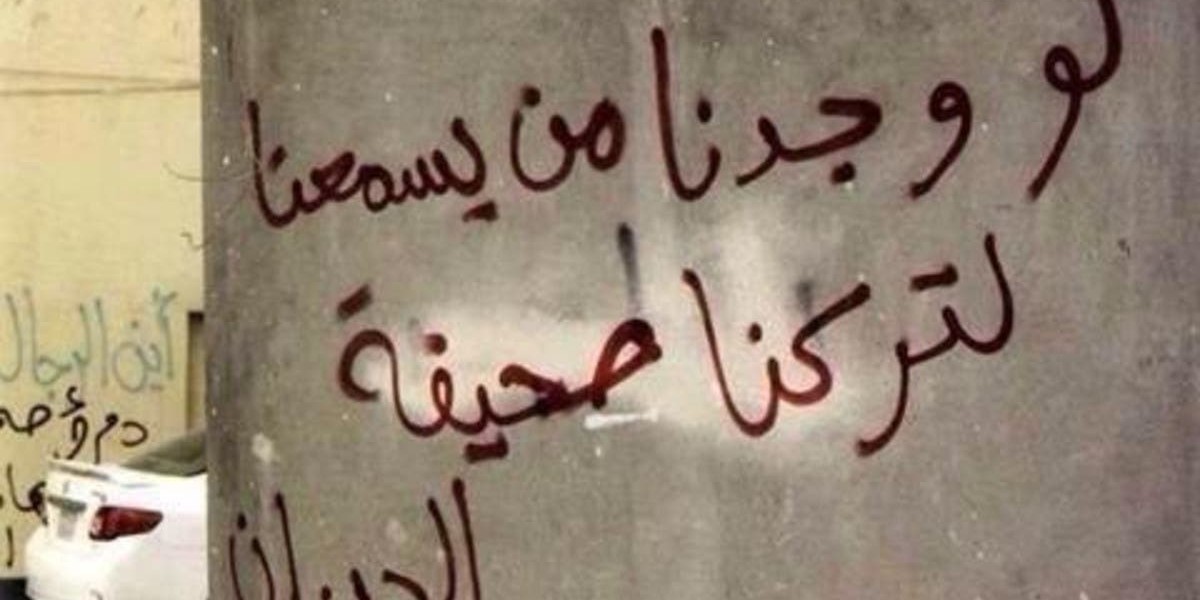 لو وجدنا من يسمعنا
لتركنا صحيفة
الجدران
أين الرجال